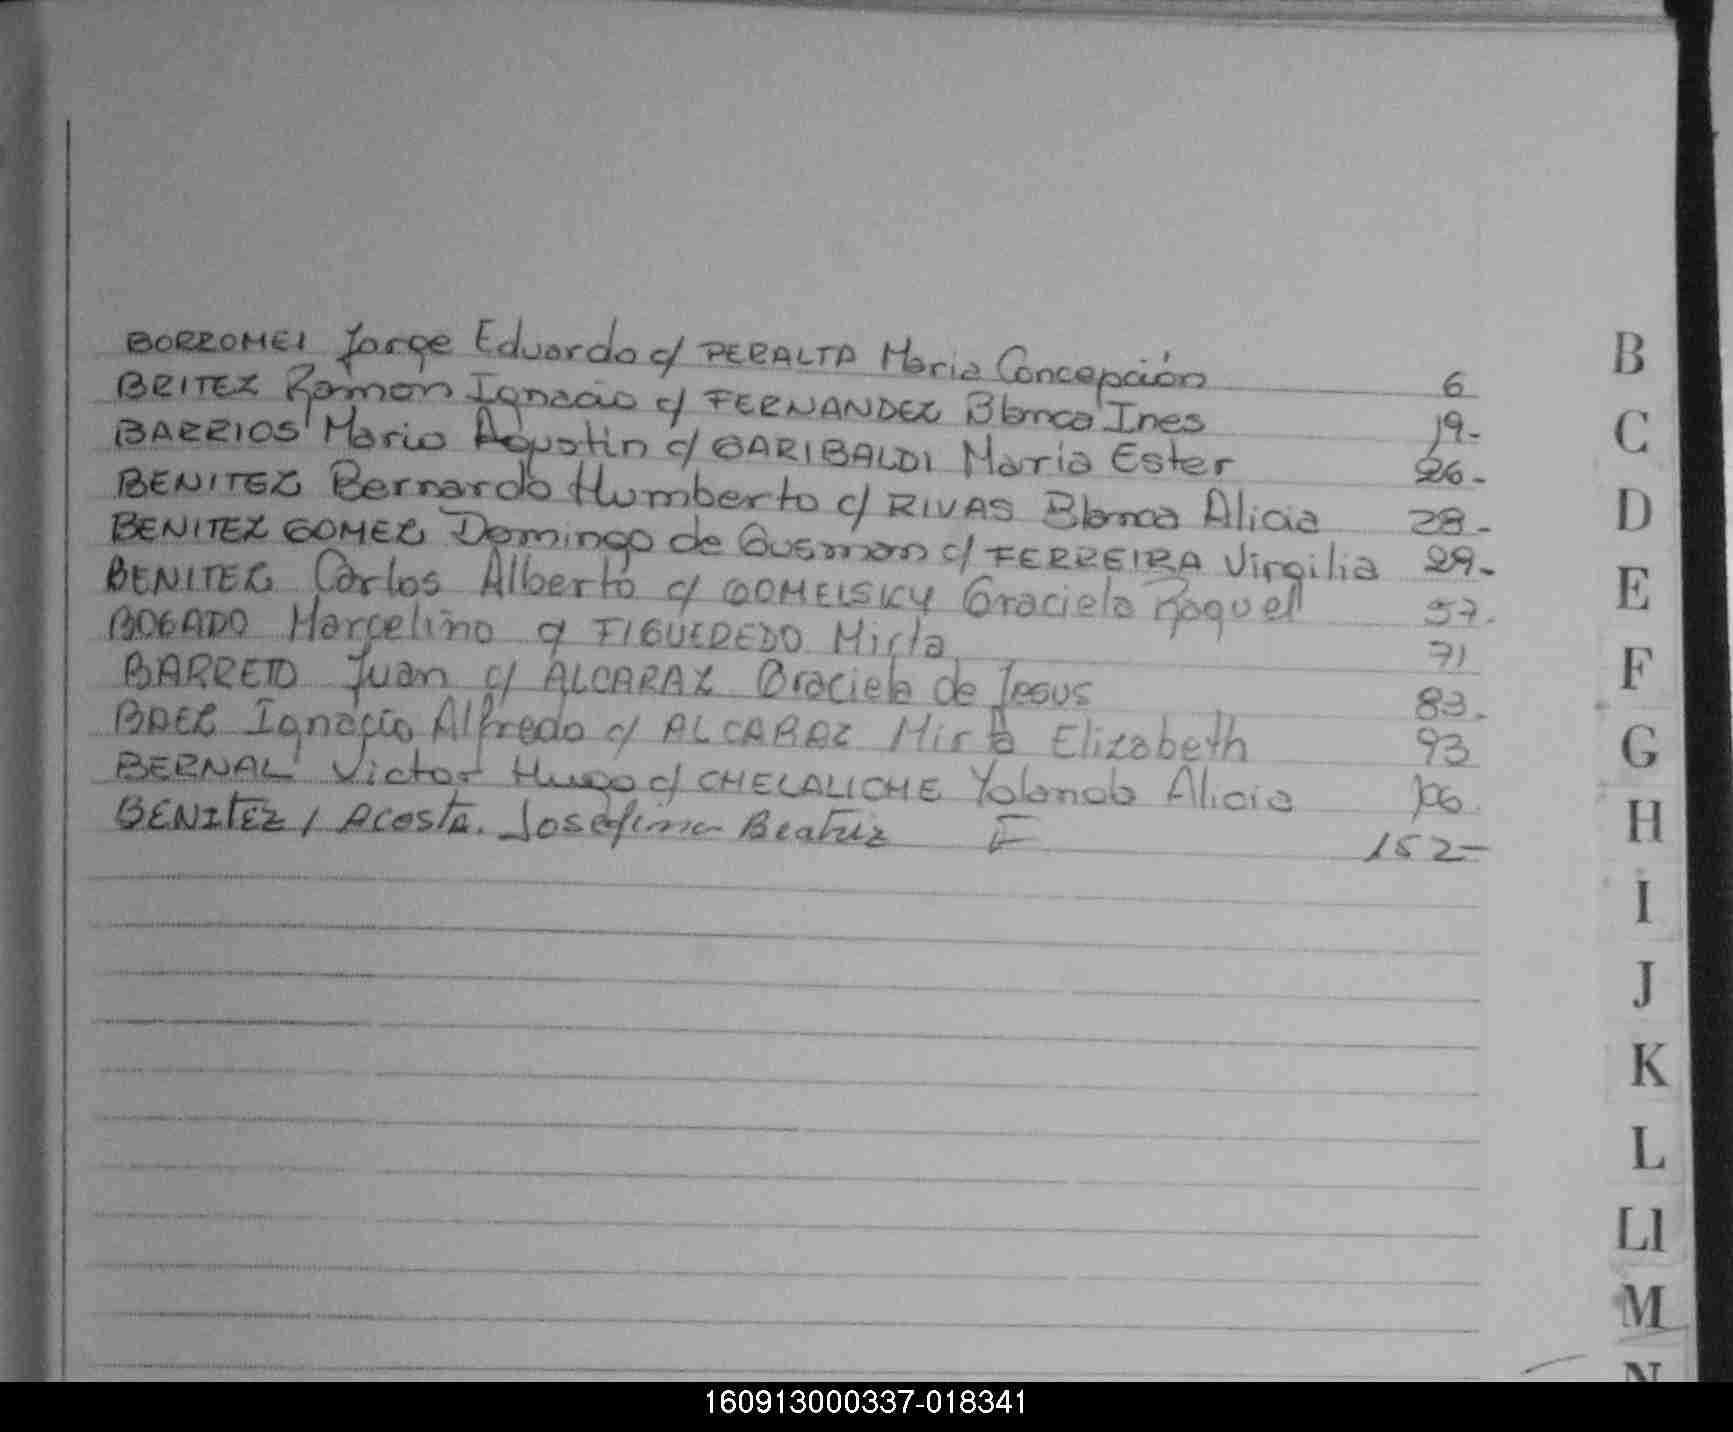 BORROMEI Jorge Eduardo c/ PERALTA Maria Concepción 6
BRITEZ Ramon Ignacio c/ FERNANDEZ Blanca Ines 19-
BARRIOS Mario Agustin c/ GARIBALDI Maria Ester 26-
BENITEZ Bernardo Humberto c/ RIVAS Blanca Alicia 28-
BENITEZ GOMEZ Domingo de Gusman c/ FERREIRA Virgilia 29-
BENITEZ Carlos Alberto c/ GOMELSKY Graciela Raquel 57-
BOGADO Marcelino c/ FIGUEREDO Mirta 71
BARRETO Juan c/ ALCARAZ Graciela de Jesus 83-
BAEZ Ignacio Alfredo c/ ALCARAZ Mirta Elizabeth 93
BERNAL Victor Hugo c/ CHELALICHE Yolanda Alicia 106
BENITEZ / Acosta. Josefima Beatriz 152-
B
C
D
E
F
G
H
I
J
K
L
Ll
M
N
160913000337-018341